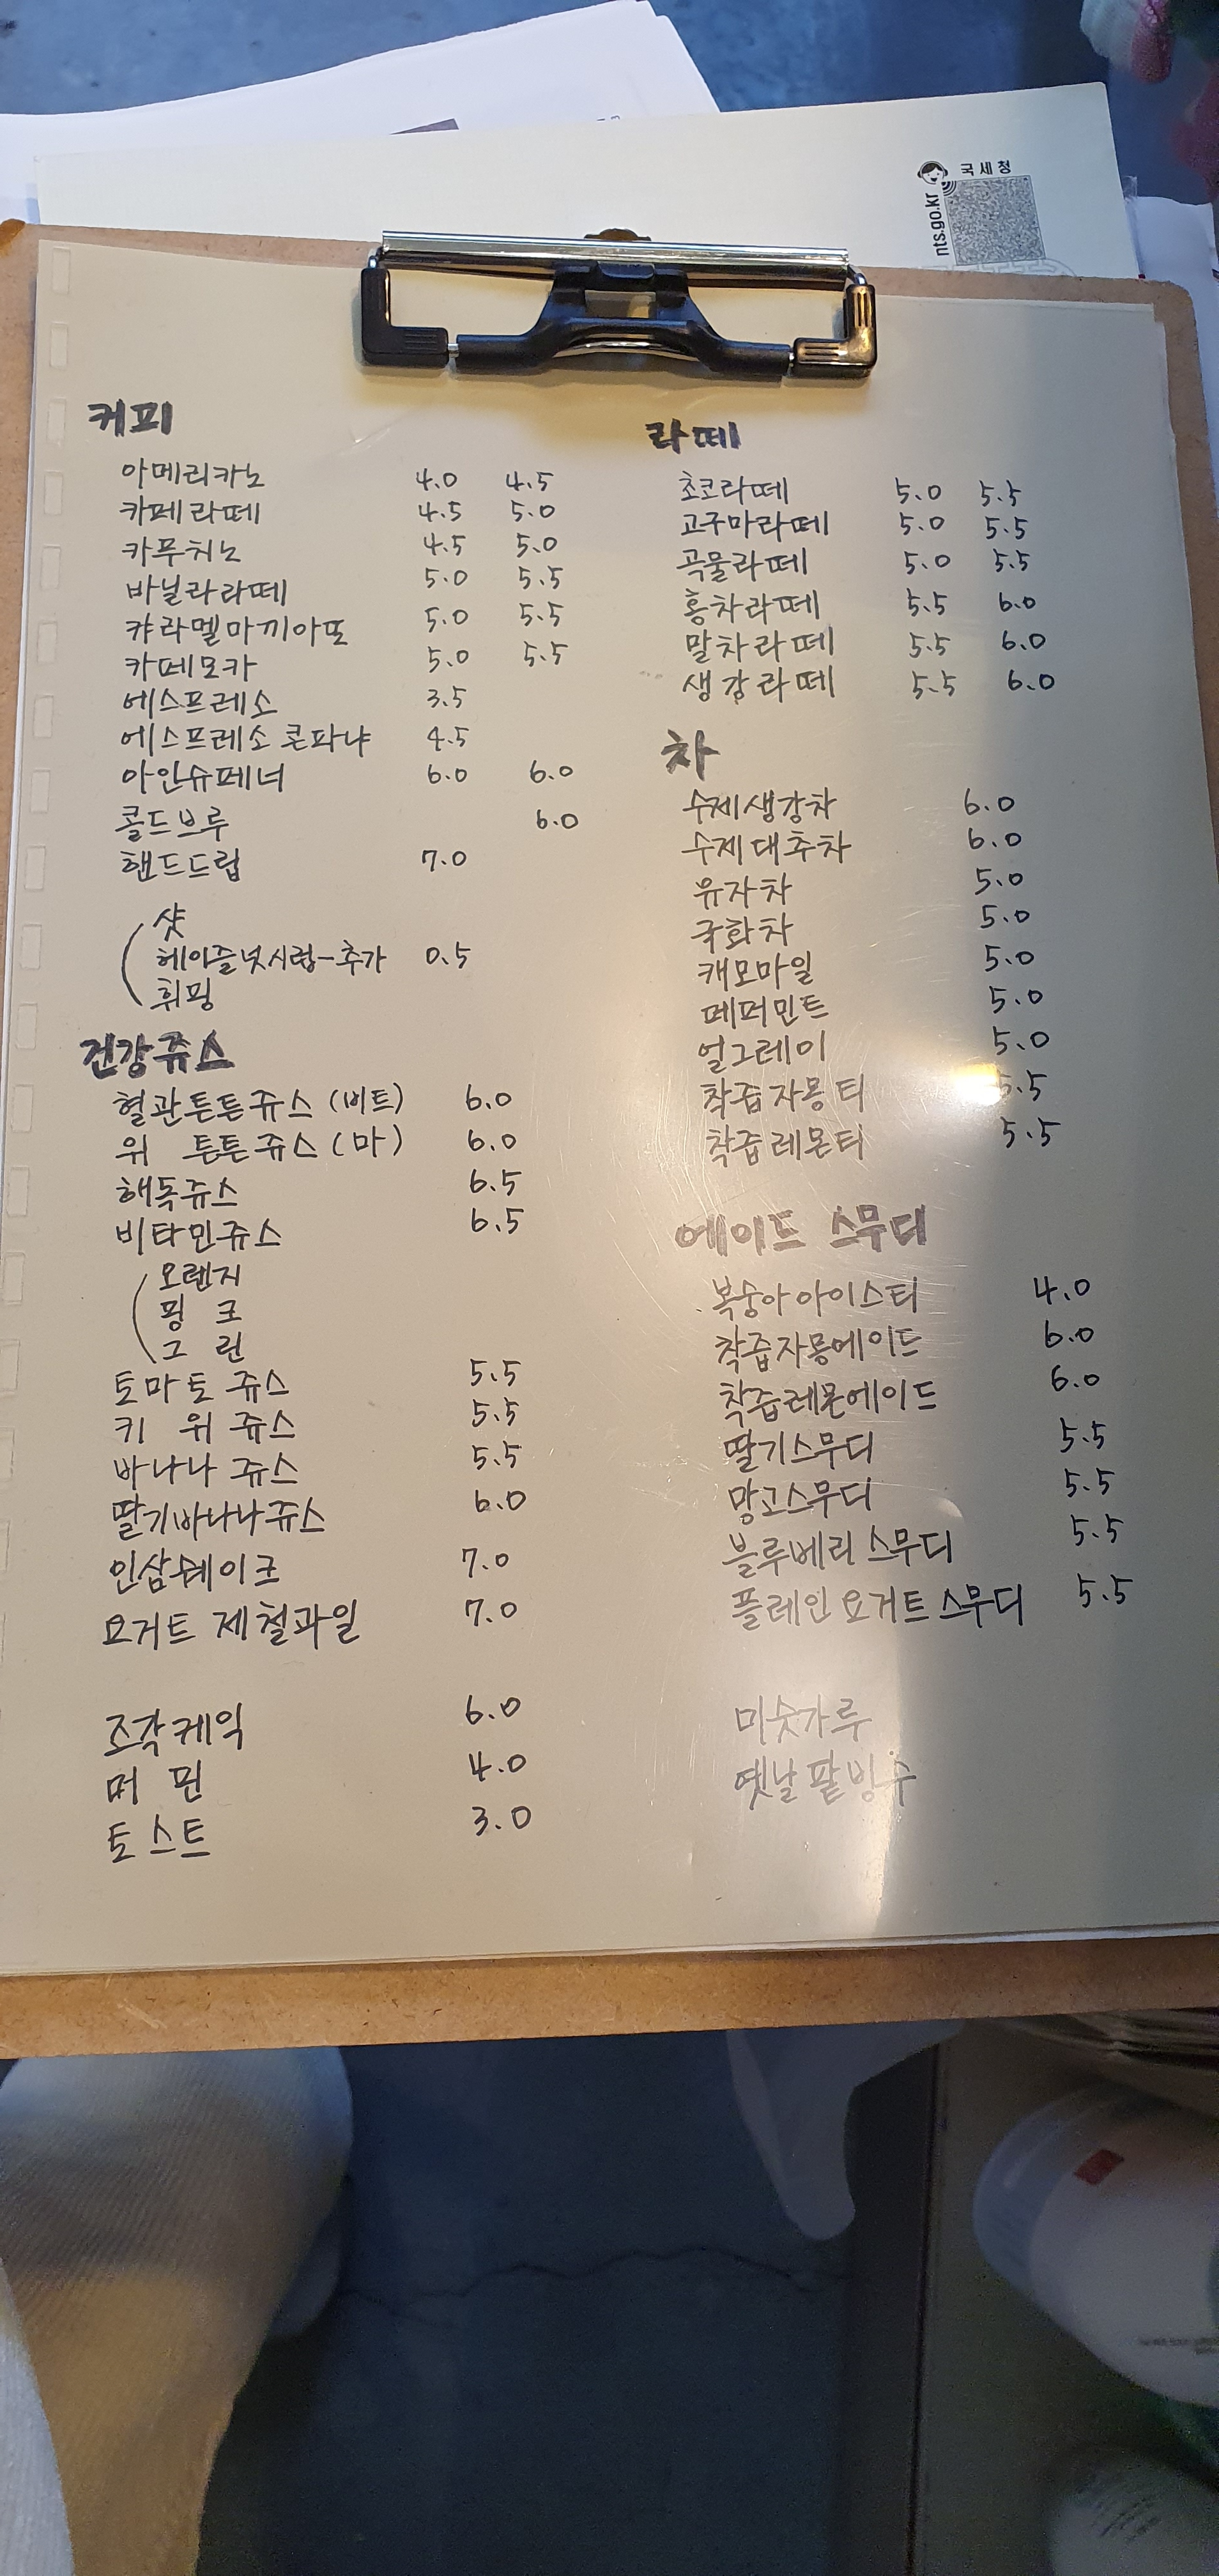 국세청
nts.go.kr
커피
아메리카노 4.0 4.5
카페라떼 4.5 5.0
카푸치노 4.5 5.0
바닐라라떼 5.0 5.5
캬라멜마끼아또 5.0 5.5
카페모카 5.0 5.5
에스프레소 3.5
에스프레소 콘파냐 4.5
아인슈페너 6.0 6.0
콜드브루 6.0
핸드드립 7.0
샷
헤이즐넛시럽-추가 0.5
휘핑
건강쥬스
혈관튼튼쥬스 (비트) 6.0
위 튼튼쥬스 (마) 6.0
해독쥬스 6.5
비타민쥬스 6.5
오렌지
핑 크
그 린
토마토 쥬스 5.5
키 위 쥬스 5.5
바나나 쥬스 5.5
딸기바나나쥬스 6.0
인삼쉐이크 7.0
요거트 제철과일 7.0
조각케익 6.0
머 핀 4.0
토스트 3.0
라떼
초코라떼 5.0 5.5
고구마라떼 5.0 5.5
곡물라떼 5.0 5.5
홍차라떼 5.5 6.0
말차라떼 5.5 6.0
생강라떼 5.5 6.0
차
수제생강차 6.0
수제대추차 6.0
유자차 5.0
국화차 5.0
캐모마일 5.0
페퍼민트 5.0
얼그레이 5.0
착즙자몽티 5.5
착즙레몬티 5.5
에이드 스무디
복숭아아이스티 4.0
착즙자몽에이드 6.0
착즙레몬에이드 6.0
딸기스무디 5.5
망고스무디 5.5
블루베리 스무디 5.5
플레인 요거트 스무디 5.5
미숫가루
옛날팥빙수